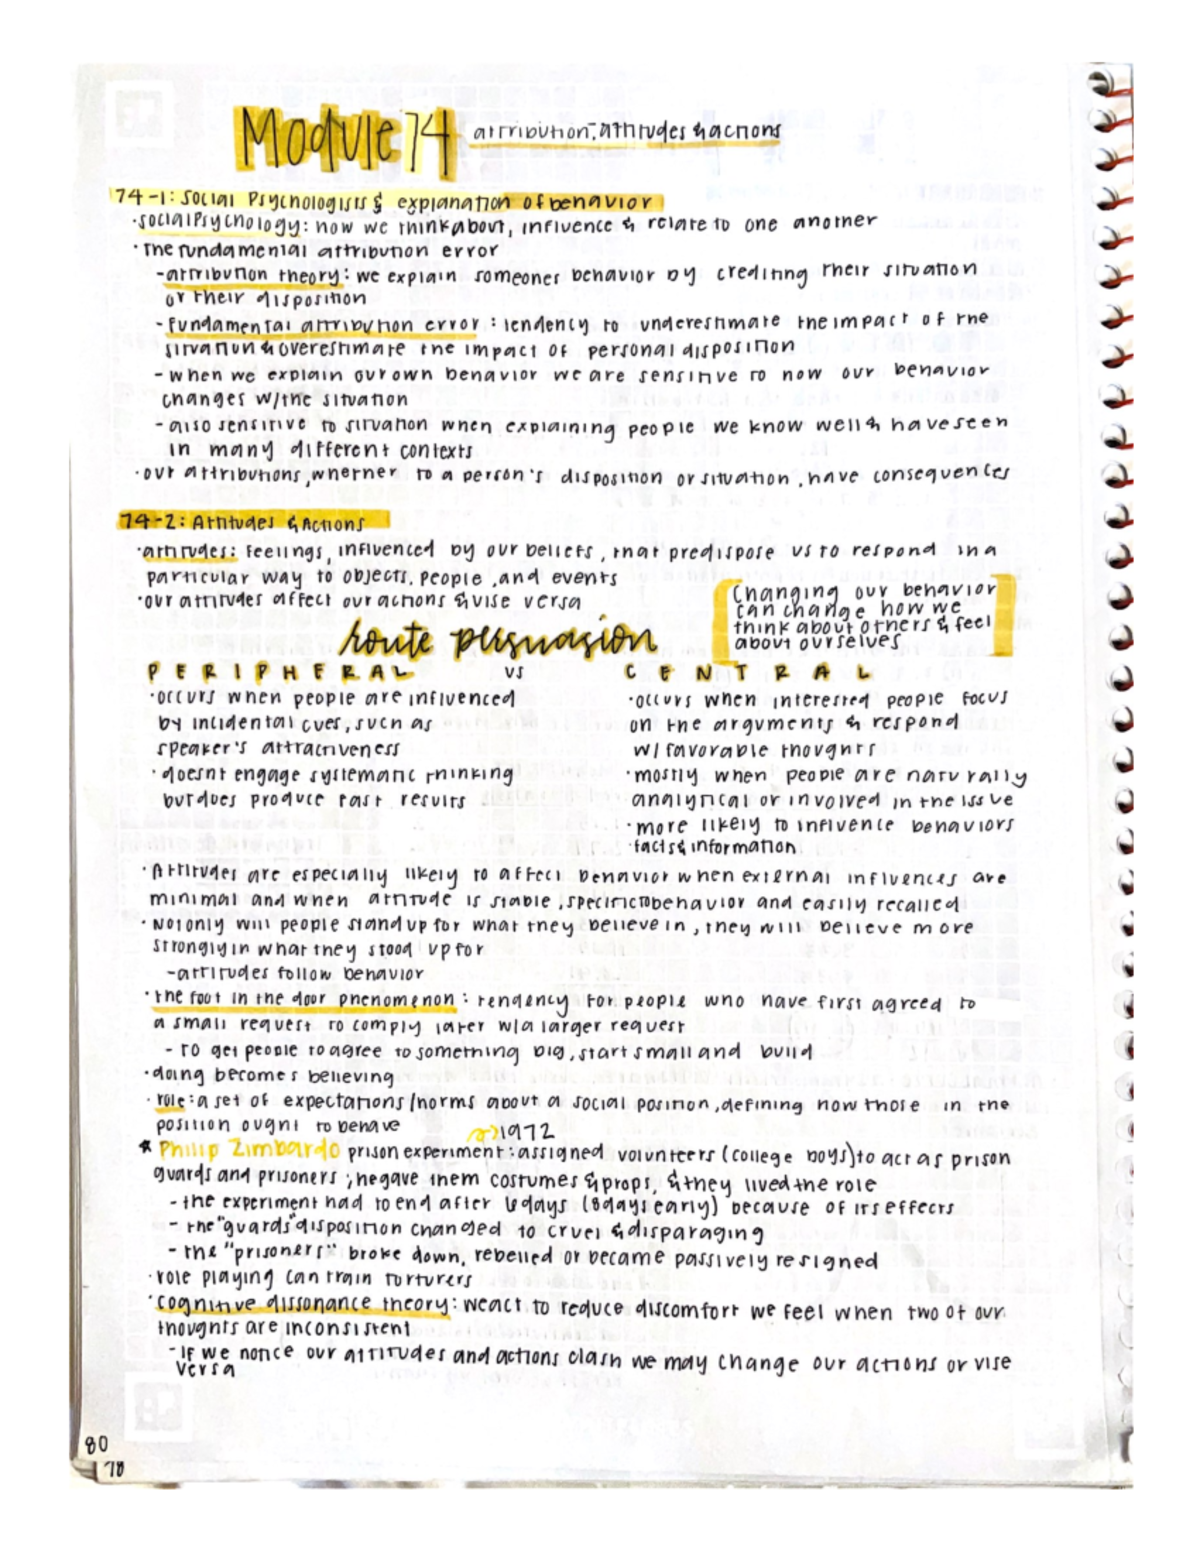 Module 74 attribution, attitudes & actions
74-1: Social Psychologists & explanation of behavior
·social Psychology: how we think about, influence & relate to one another
·The fundamental attribution error
-attribution theory: we explain someones behavior by crediting their situation
or their disposition
-fundamental attribution error: tendency to underestimate the impact of the
situation & overestimate the impact of personal disposition
-when we explain our own behavior we are sensitive to how our behavior
changes w/the situation
-also sensitive to situation when explaining people we know well & have seen
in many different contexts
·our attributions, whether to a person's disposition or situation, have consequences
74-2: Attitudes & Actions
·attitudes: feelings, influenced by our beliefs, that predispose us to respond in a
particular way to objects, people, and events
·our attitudes affect our actions & vise versa
Changing our behavior
can change how we
think about others & feel
about ourselves
route persuasion
PERIPHERAL vs CENTRAL
·occurs when people are influenced
by incidental cues, such as
speaker's attractiveness
·doesnt engage systematic thinking
but does produce fast results
·occurs when interested people focus
on the arguments & respond
w/ favorable thoughts
·mostly when people are naturally
analytical or involved in the issue
·more likely to influence behaviors
·facts & information
·Attitudes are especially likely to affect behavior when external influences are
minimal and when attitude is stable, specific to behavior and easily recalled
·Not only will people stand up for what they believe in, they will believe more
strongly in what they stood up for
-attitudes follow behavior
·the foot in the door phenomenon: tendency for people who have first agreed to
a small request to comply later w/a larger request
- to get people to agree to something big, start small and build
·doing becomes believing
·role: a set of expectations/norms about a social position, defining how those in the
position ought to behave
1972
* Philip Zimbardo prison experiment: assigned volunteers (college boys) to act as prison
guards and prisoners; he gave them costumes & props, & they lived the role
- the experiment had to end after 6 days (8 days early) because of its effects
- the "guards" disposition changed to cruel & disparaging
- the "prisoners" broke down, rebelled or became passively resigned
·role playing can train torturers
·cognitive dissonance theory: we act to reduce discomfort we feel when two of our
thoughts are inconsistent
-If we notice our attitudes and actions clash we may change our actions or vise
versa
80
78